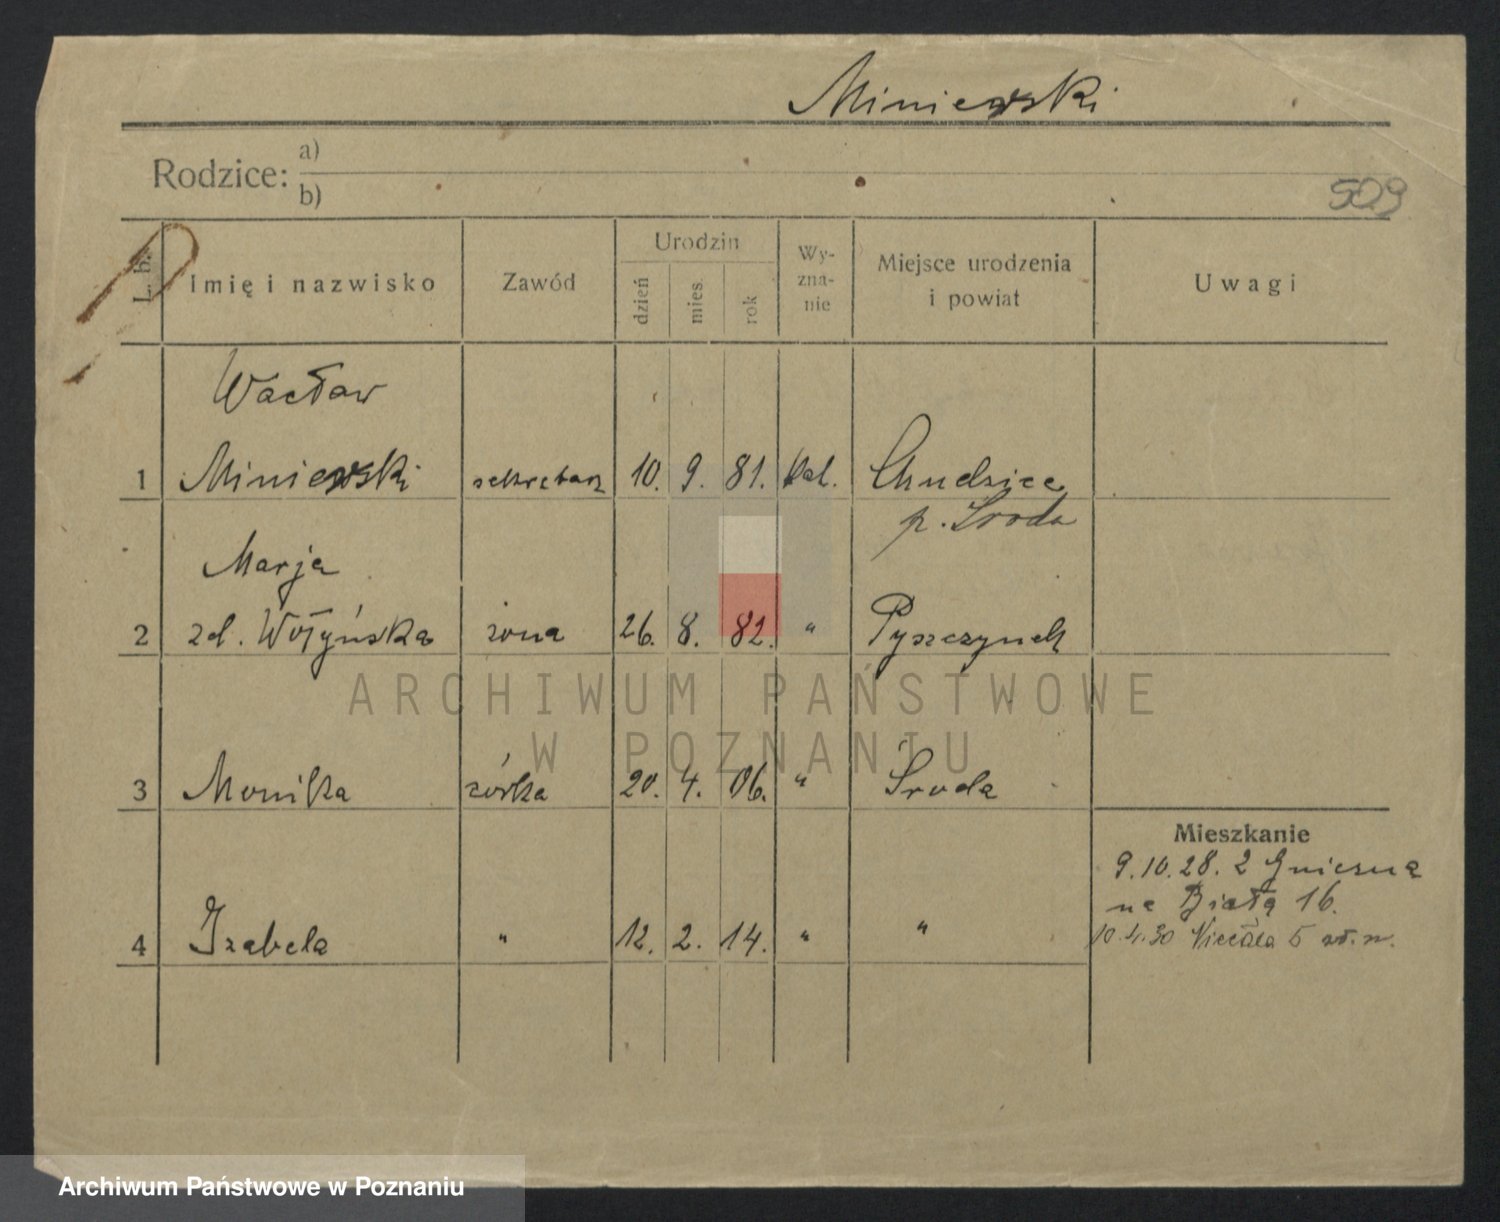 Miniewski
Rodzice: a)
b)
509
L. b. Imię i nazwisko Zawód Urodzin dzień mies. rok Wy-zna-nie Miejsce urodzenia i powiat Uwagi
Wacław
1 Miniewski sekretarz 10. 9. 81. kat. Chudzice
p. Środa
Marja
2 zd. Wołyńska żona 26. 8. 82. " Pyszczynek
ARCHIWUM PAŃSTWOWE
W POZNANIU
3 Monika córka 20. 4. 06. " Środa
Mieszkanie
9.10.28. z Gniezna
na Białą 16.
4 Izabela " 12. 2. 14. " "
10.4.30 5
Archiwum Państwowe w Poznaniu